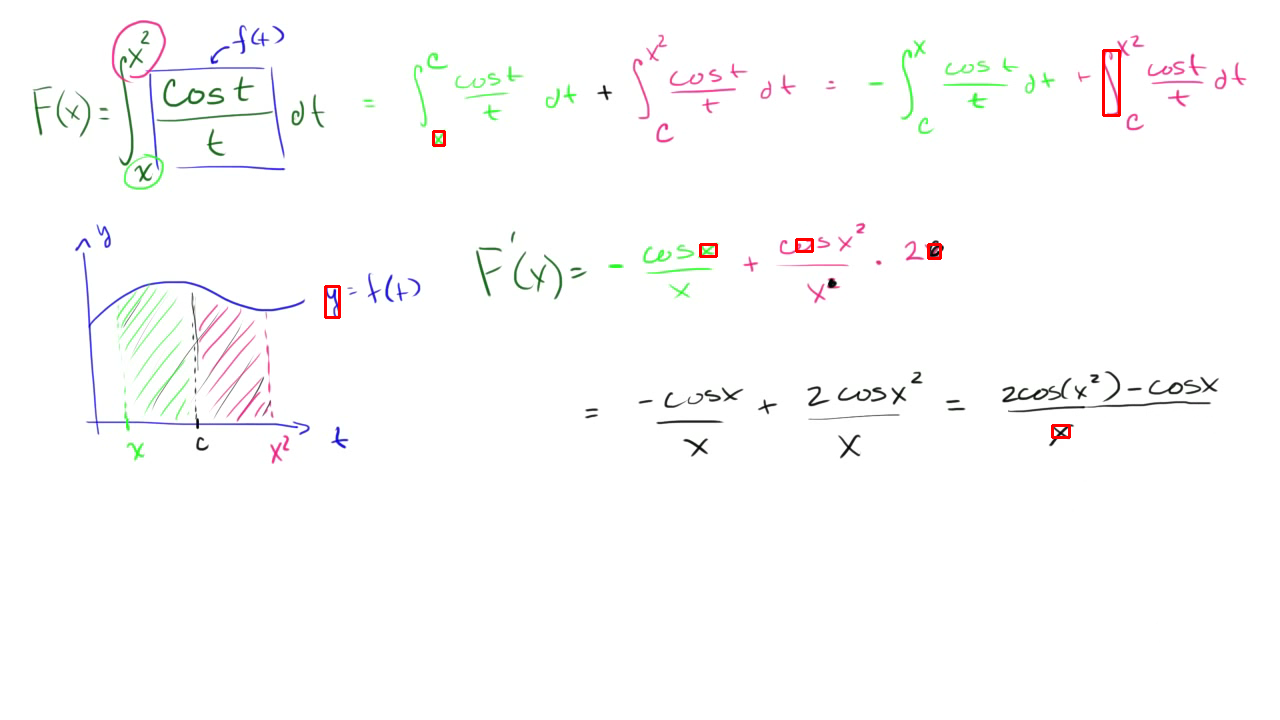 F(x) = ∫_x^{x²} cos t / t dt = ∫_x^c cos t / t dt + ∫_c^{x²} cos t / t dt = - ∫_c^x cos t / t dt + ∫_c^{x²} cos t / t dt
f(t)
y
y = f(t)
x c x² t
F'(x) = - cos x / x + cos x² / x · 2
= -cosx / x + 2 cosx² / x = 2cos(x²) - cosx / x